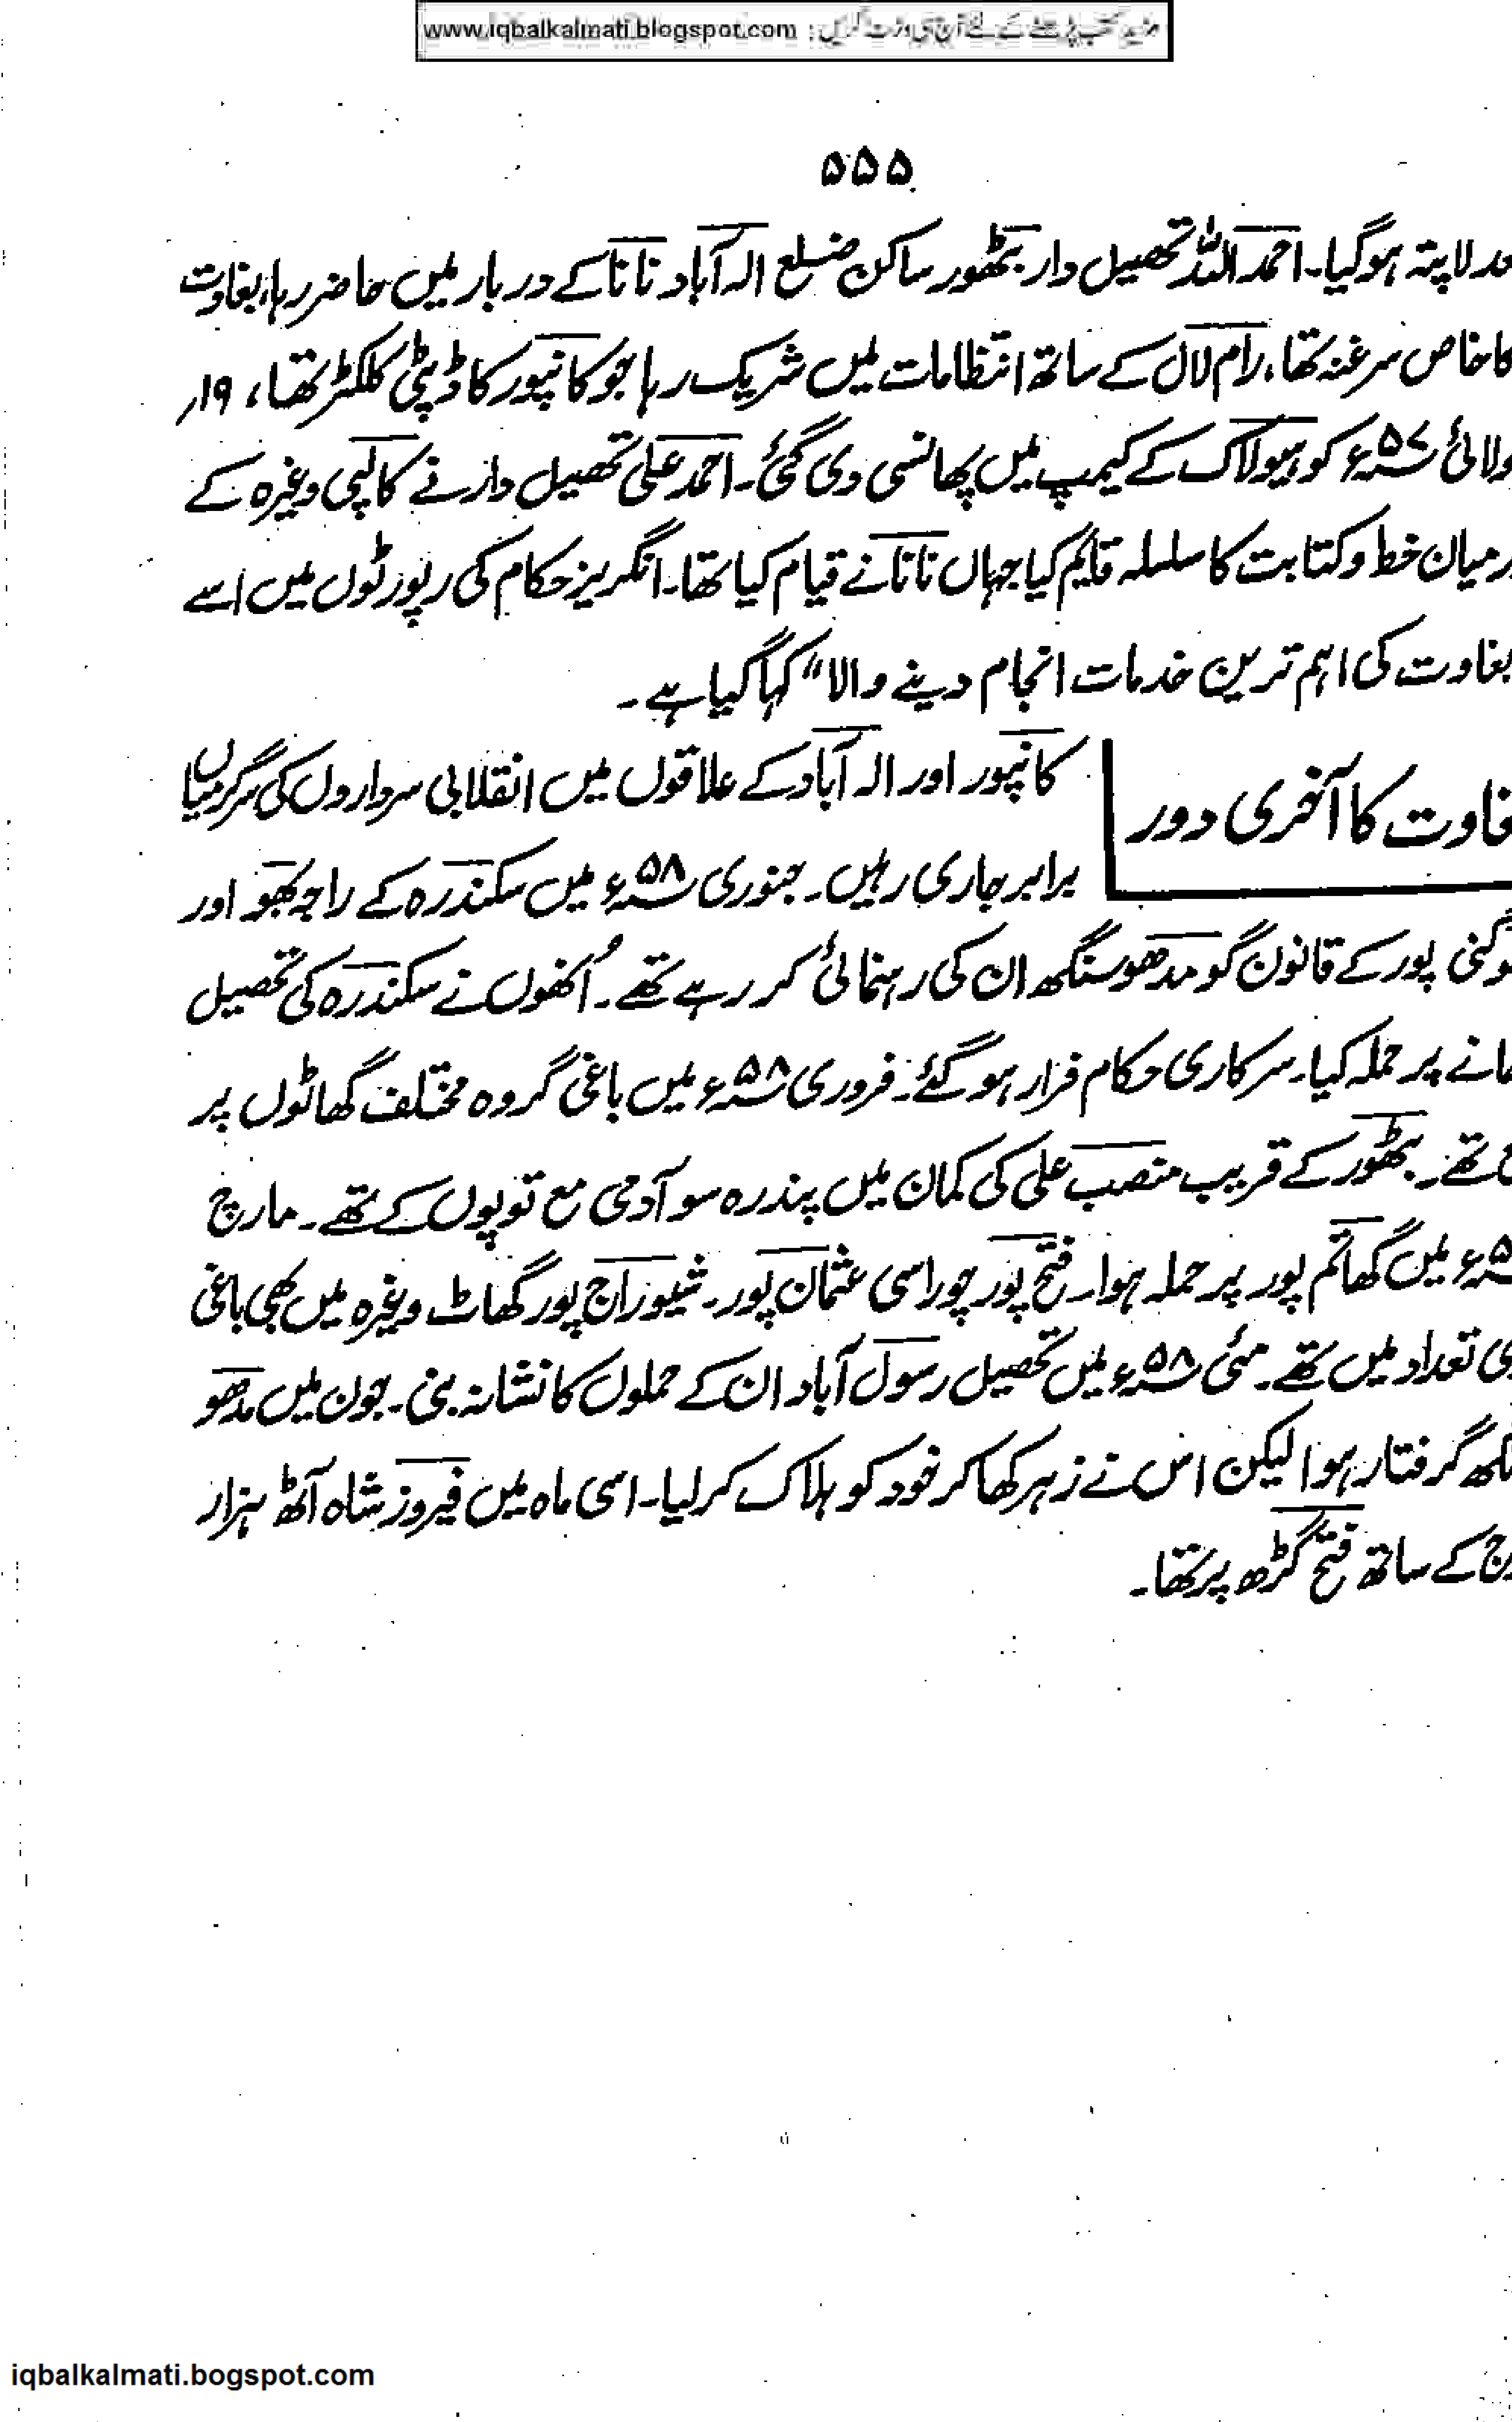 مزید کتب پڑھنے کے لئے آج ہی وزٹ کریں : www.iqbalkalmati.blogspot.com
۵۵۵
لاپتہ ہوگیا۔ احمد اللہ تحصیل دار بٹھور ساکن ضلع الہ آباد نانا کے دربار میں حاضر رہا، بغاوت
کا خاص سرغنہ تھا، رام لال کے ساتھ انتظامات میں شریک رہا جو کانپور کا ڈپٹی کلکٹر تھا، ۱۹ر
ولائی ۵۷ء کو ہیولاک کے کیمپ میں پھانسی دی گئی۔ احمد علی تحصیل دار نے کالپی وغیرہ کے
رمیان خط و کتابت کا سلسلہ قایم کیا جہاں نانا نے قیام کیا تھا۔ انگریز حکام کی رپورٹوں میں اسے
بغاوت کی اہم ترین خدمات انجام دینے والا" کہا گیا ہے۔
غاوت کا آخری دور
کانپور اور الہ آباد کے علاقوں میں انقلابی سرداروں کی سرگرمیاں
برابر جاری رہیں۔ جنوری ۵۸ء میں سکندرہ کے راجہ بھجو اور
وگنی پور کے قانون گو مدھو سنگھ ان کی رہنمائی کر رہے تھے۔ اُنھوں نے سکندرہ کی تحصیل
انے پر حملہ کیا۔ سرکاری حکام فرار ہو گئے۔ فروری ۵۸ء میں باغی گروہ مختلف گھاٹوں پر
تھے۔ بٹھور کے قریب منصب علی کی کمان میں پندرہ سو آدمی مع توپوں کے تھے۔ مارچ
۵ء میں گھاتم پور پر حملہ ہوا۔ فتح پور چوراسی عثمان پور۔ شیوراج پور گھاٹ وغیرہ میں بھی باغی
ی تعداد میں تھے۔ مئی ۵۸ء میں تحصیل رسول آباد ان کے حملوں کا نشانہ بنی۔ جون میں مدھو
گھ گرفتار ہوا لیکن اس نے زہر کھا کر خود کو ہلاک کر لیا۔ اسی ماہ میں فیروز شاہ آٹھ ہزار
وج کے ساتھ فتح گڑھ پر تھا۔
iqbalkalmati.bogspot.com